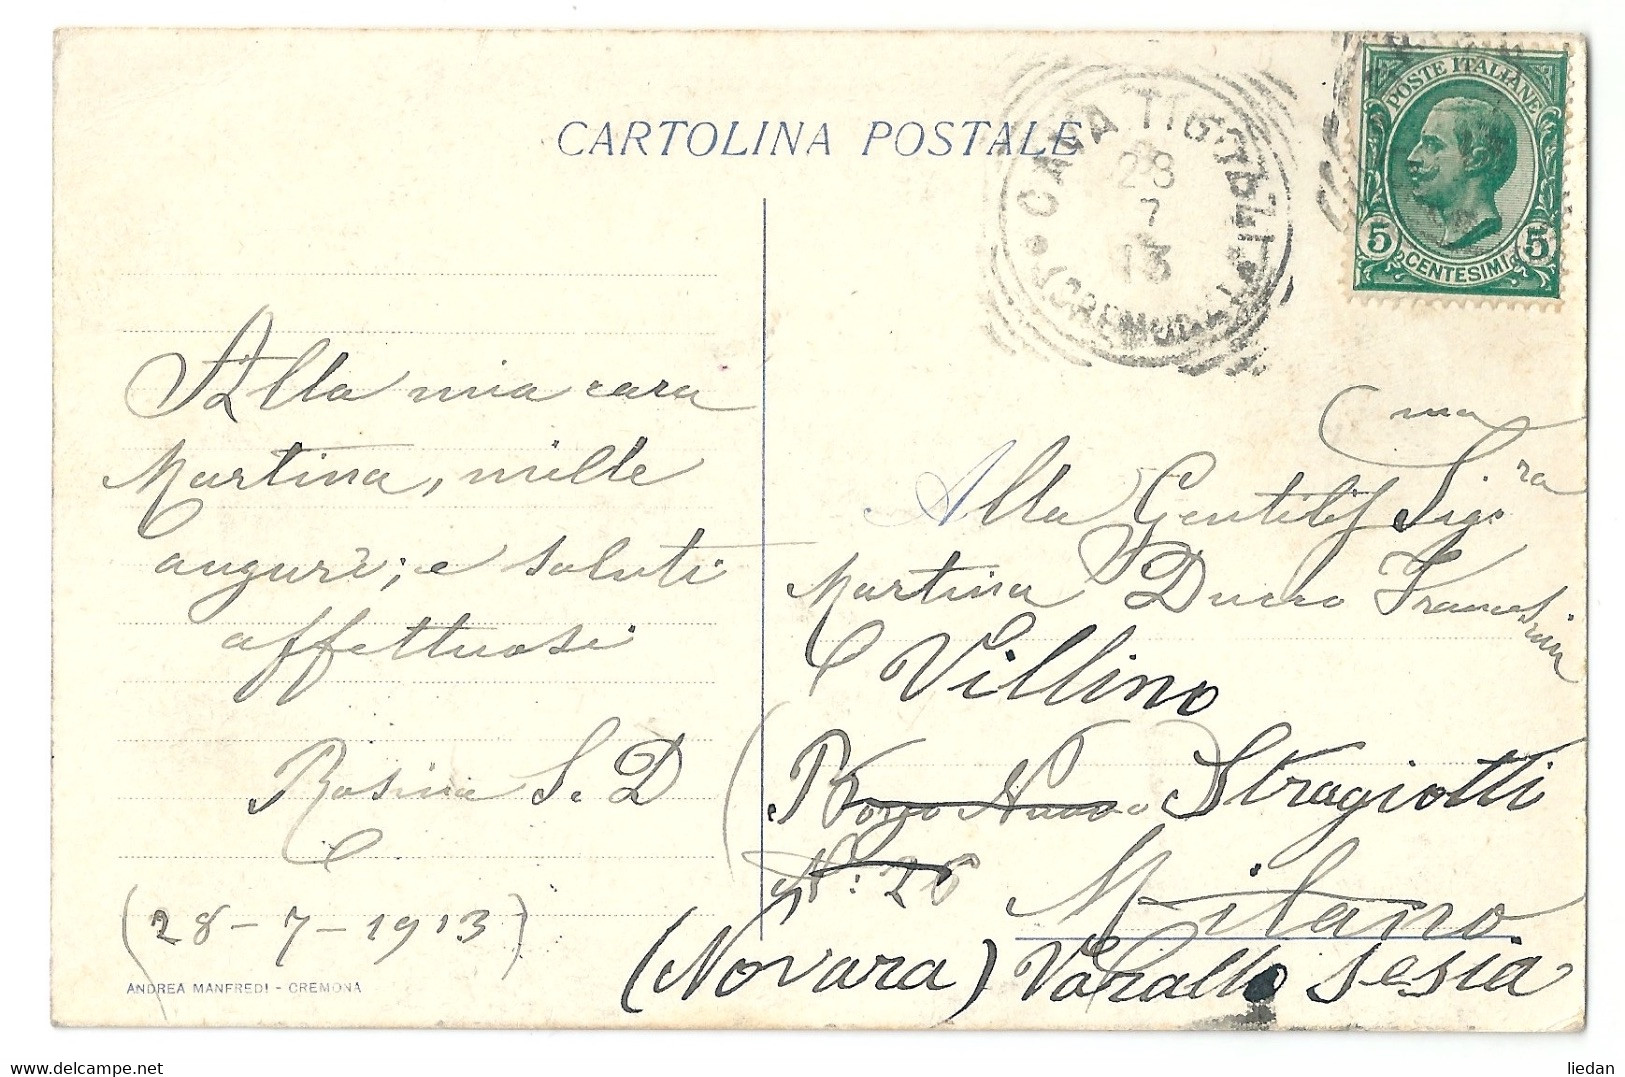 CARTOLINA POSTALE
CAVA TIGOZZI
28
7
13
(CREMONA)
POSTE ITALIANE
5 CENTESIMI 5
Alla mia cara
Martina, mille
auguri; e saluti
affettuosi
Rosina S. D
(28-7-1913)
ANDREA MANFREDI - CREMONA
Alla Gentilis Sig.ra
ma
Martina Ducco
Villino
Stragiotti
N.: 26
Milano
(Novara) Varallo Sesia
delcampe.net
liedan